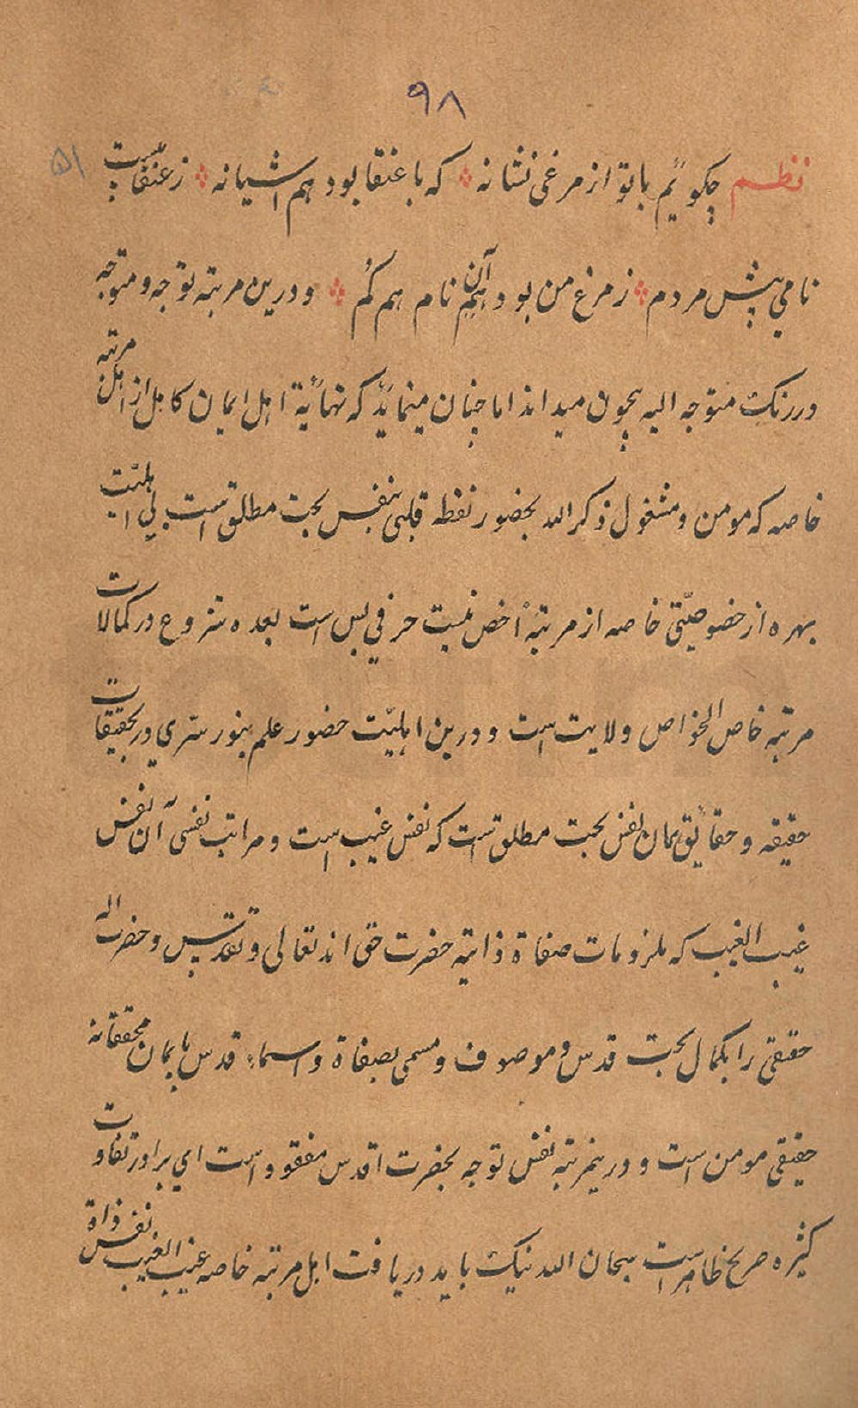 ۹۸
۵۱
نظم چکویم با تو از مرغی نشانه که با عنقا بود هم اشیانه ز عنقا هست
نامی پیش مردم ز مرغ من بود آن نام هم گم و درین مرتبه توجه و متوجه
در رنک متوجه الیه بیچون میداند اما چنان مینماید که نهائیة اهل ایمان کامل از اهل مرتبه
خاصه که مومن و مشغول ذکر الله بحضور نقطه قلبی بنفس بحت مطلق است بی اهلیت
بهره از خصوصیتی خاصه از مرتبهٔ اخص نیست حرفی بس است بعده شروع در کمالات
مرتبه خاص الخواص ولایت است و درین اهلیّت حضور علم بنور سرّی در تحقیقات
حقیقه و حقائق همان نفس بحت مطلق است که نفس غیب است و مراتب نفسی آن نفس
غیب الغیب که ملزومات صفاة ذاتیه حضرت حق اند تعالی و تقدس و حضرت اله
حقیقی را بکمال بحت قدس و موصوف و مسمی بصفاة و اسماء قدس بایمان محققانه
حقیقی مومن است و درینمرتبه نفس توجه بحضرت اقدس مفقود است ای برادر تفاوت
کثیره صریح ظاهر است سبحان الله نیک باید دریافت اهل مرتبه خاصه غیب الغیب نفس ذاة